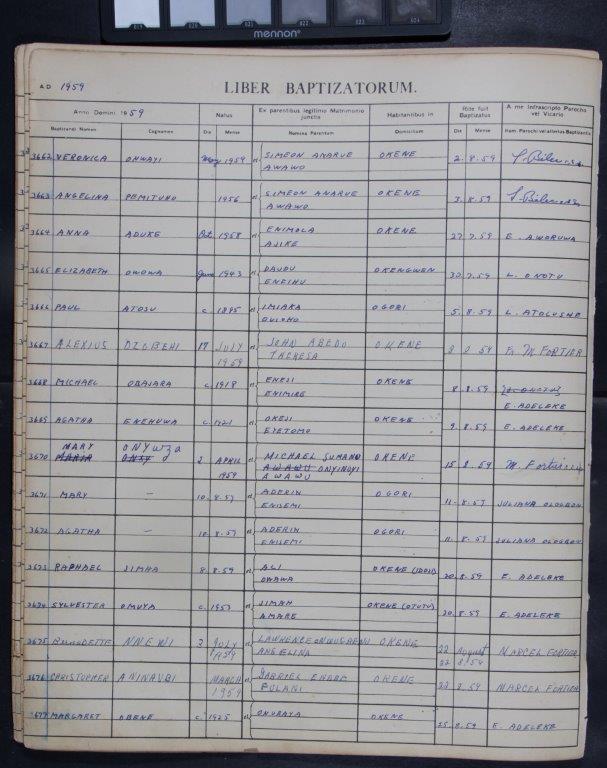 mennon
A D 1959 LIBER BAPTIZATORUM.
Anno Domini 1959 Natus Ex parentibus legitimo Matrimonio junctis Habitantibus in Ritе fuit Baptizatus A me Infrascripto Parocho vel Vicario
Baptizandi Nomen Cognomen Die Mense Nomina Parentum Domicilium Die Mense
3662 VERONICA ONWAYI May 1959 SIMEON ANARUE OKENE 2. 8. 59
AWAWO
3663 ANGELINA PEMITUNO 1956 SIMEON ANARUE OKENE 3. 8. 59
AWAWO
3664 ANNA ADUKE Oct 1958 ENIMOLA OKENE 27. 7. 59 E. AWORUWA
AJIKE
3665 ELIZABETH OWOWA June 1943 DAUDU OKENGWEN 30. 7. 59 L. ONOTU
ENEIHU
3666 PAUL ATOSU c. 1895 IMIAKA OGORI 5. 8. 59
3667 ALEXIUS OZOBEHI 17 JULY JOHN ABEDO OKENE Fr. M FORTIER
1959 THERESA
3668 MICHAEL OBAJARA c. 1918 ENESI OKENE 8. 8. 59
ENIMIRE E. ADELEKE
3669 AGATHA ENEHUWA c. 1921 OKEJI OKENE 9. 8. 59 E. ADELEKE
EYETOMO
MARY ONYWZA
3670 MARIA ONSY 2 APRIL MICHAEL SUMANO OKENE 15 8. 59 M. Fortier
1959 AWAWU ONYINOYI
AWAWU
3671 MARY - 10. 8. 59 ADERIN OGORI 11. 8. 59 JULIANA OLOGBON
ENISEMI
3672 AGATHA - 10. 8. 59 ADERIN OGORI 11. 8. 59 JULIANA OLOGBON
ENISEMI
3673 RAPHAEL JIMHA 8. 8. 59 ALI OKENE (IDOJI) 20. 8. 59 E. ADELEKE
OWAWA
3674 SYLVESTER OMUYA c. 1953 JIMAH OKENE (OTUTU) 20. 8. 59 E. ADELEKE
AMARE
3675 Bernadette NNEWI 2 July LAWRENCE OKENE 22 August MARCEL FORTIER
1959 ANGELINA 22 8. 59
3676 CHRISTOPHER ANINAUBI MARCH GABRIEL OKENE 22 8. 59 MARCEL FORTIER
1959 FULANI
3677 MARGARET OBENE c. 1925 ONUBAYA OKENE 25. 8. 59 E. ADELEKE